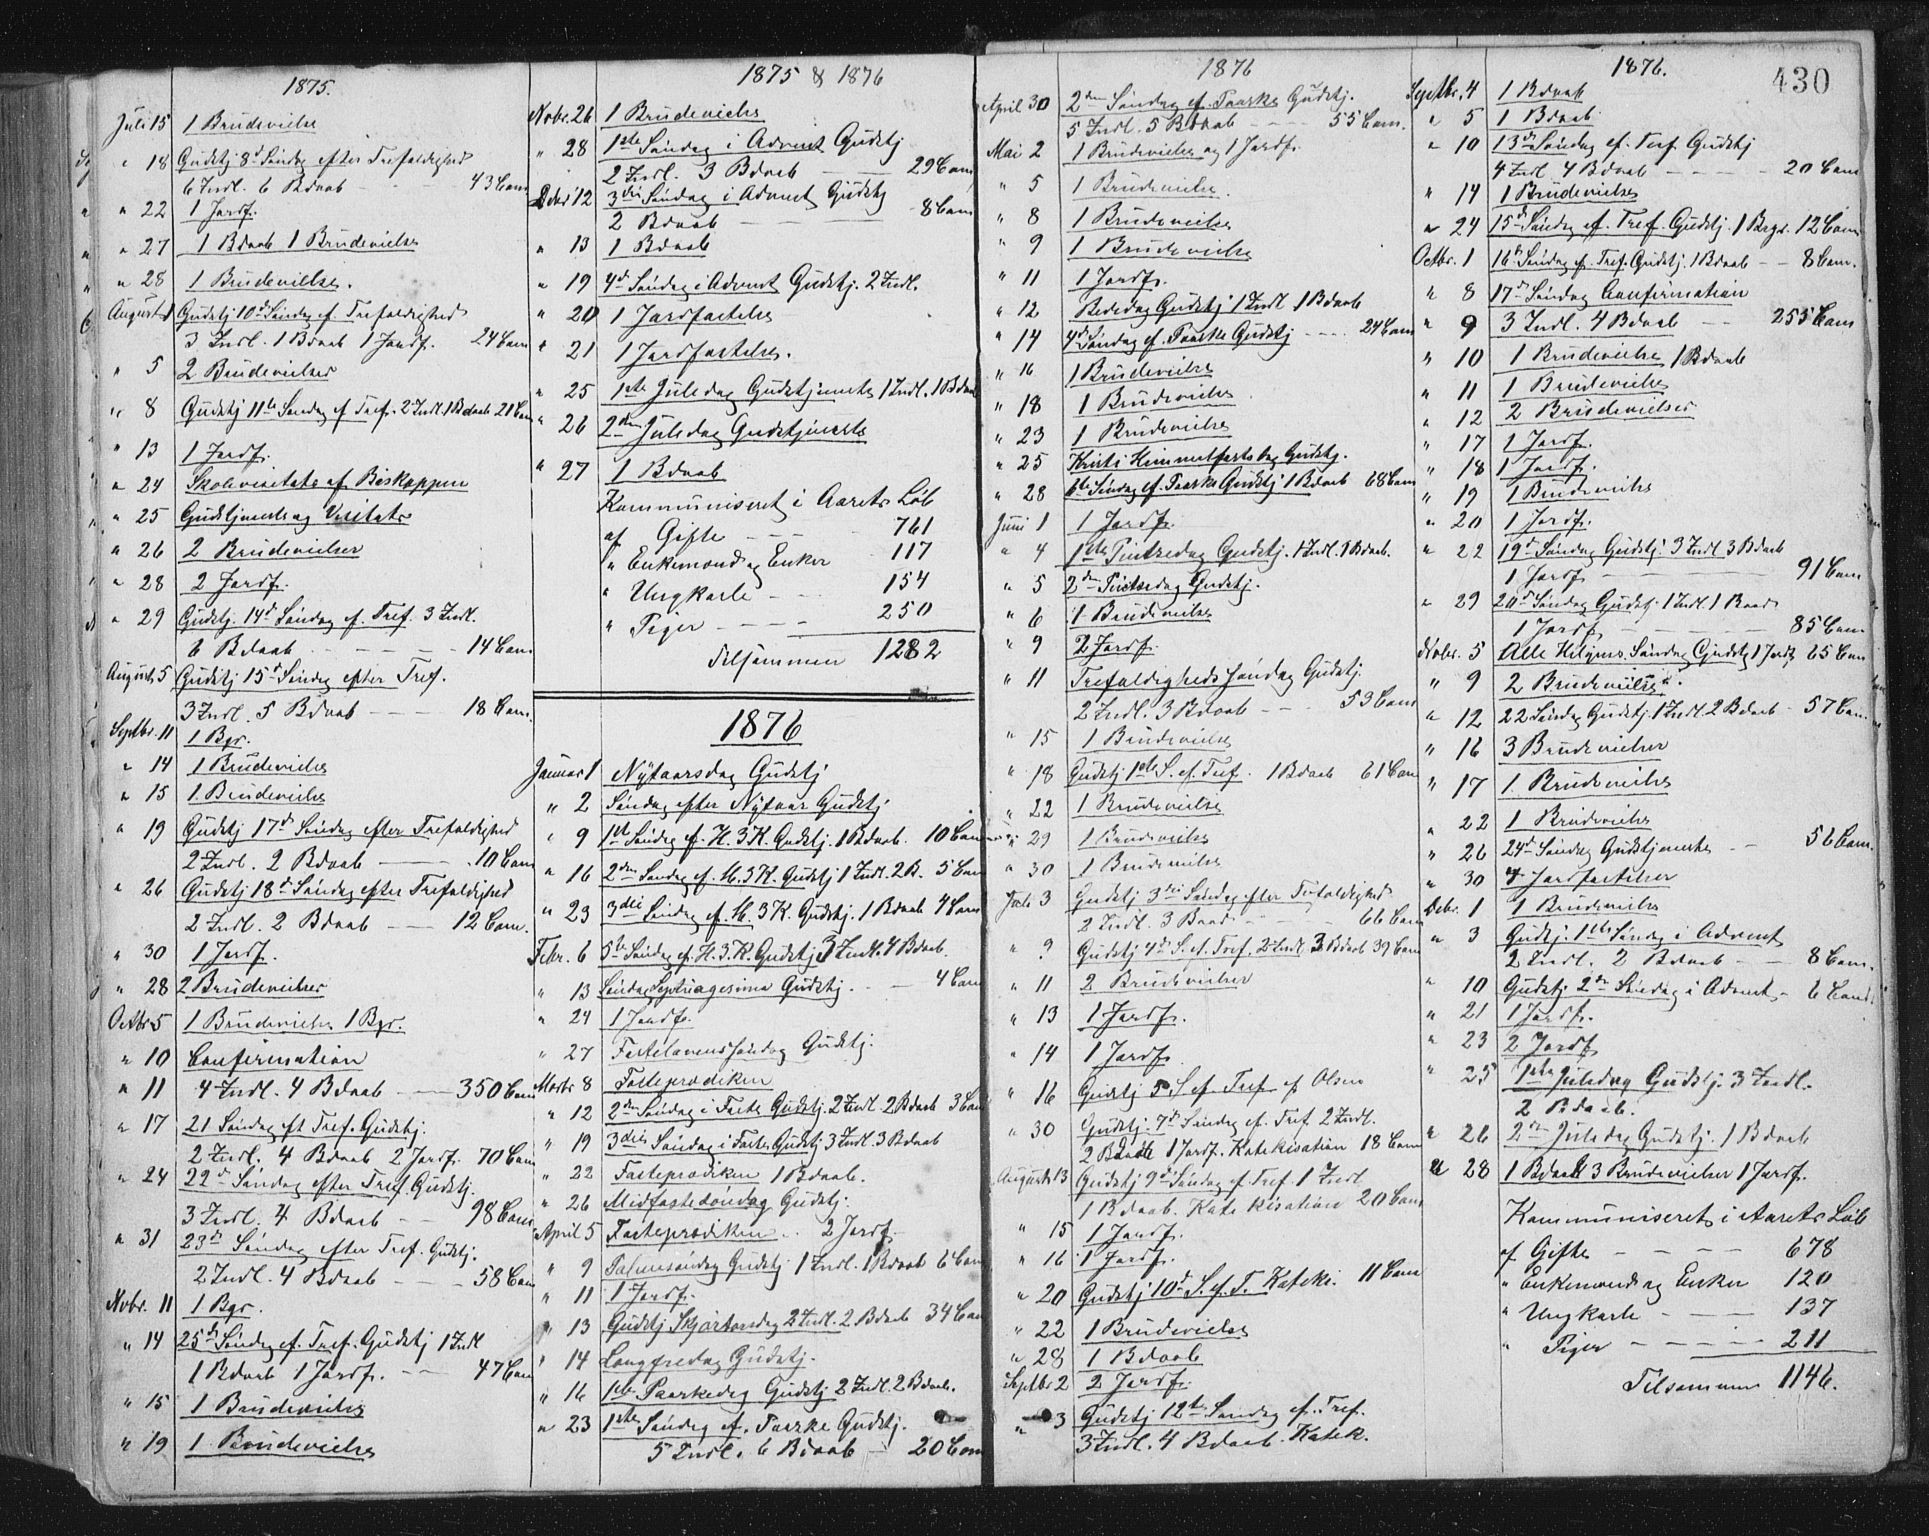 1875.
Juli 15 1 Brudevielse
" 18 Gudstj 8d Søndag efter Trefoldighed
6 Indl. 6 Bdaab - - 43 Com
" 22 1 Jordf.
" 27 1 Bdaab 1 Brudevielse
" 28 1 Brudevielse.
August 1 Gudstj 10d Søndag ef. Trefoldighed
3 Indl. 1 Bdaab 1 Jordf. 24 Com
" 5 2 Brudevielser
" 8 Gudstj 11te Søndag ef Tref. 2 Indl. 1 Bdaab 21 Com
" 13 1 Jordf.
" 24 Skolevisitats af Biskoppen
" 25 Gudstjeneste og Visitats
" 26 2 Brudevielser
" 28 2 Jordf.
" 29 Gudstj. 14d Søndag ef. Tref. 3 Indl.
6 Bdaab - - - 14 Com
August 5 Gudstj 15d Søndag efter Tref.
3 Indl. 5 Bdaab - - 18 Com.
Septbr. 11 1 Bgr.
" 14 1 Brudevielse
" 15 1 Brudevielse
" 19 Gudstj 17d Søndag efter Trefoldighed
2 Indl. 2 Bdaab - - 10 Com
" 26 Gudstj 18d Søndag efter Trefoldighed
2 Indl. 2 Bdaab - - 12 Com.
" 30 1 Jordf.
" 28 2 Brudevielser
Octbr 5 1 Brudevielse 1 Bgr.
" 10 Confirmation
" 11 4 Indl. 4 Bdaab - - 350 Com
" 17 21 Søndag eft Tref. Gudstj.
2 Indl. 4 Bdaab 2 Jordf. 70 Com
" 24 22d Søndag efter Tref Gudstj.
3 Indl. 4 Bdaab - - 98 Com
" 31 23d Søndag efter Tref. Gudstj.
2 Indl. 4 Bdaab - - 58 Com
Novbr. 11 1 Bgr.
" 14 25d Søndag ef. Tref. Gudstj 1 Indl
1 Bdaab 1 Jordf. - - 47 Com
" 15 1 Brudevielse
" 19 1 Brudevielse
1875 & 1876
Novbr. 26 1 Brudevielse
" 28 1ste Søndag i Advent Gudstj
2 Indl. 3 Bdaab - - 29 Com
Decbr 12 3die Søndag i Advent Gudstj
2 Bdaab - - 8 Com
" 13 1 Bdaab
" 19 4d Søndag i Advent Gudstj. 2 Indl.
" 20 1 Jordfæstelse
" 21 1 Jordfæstelse.
" 25 1ste Juledag Gudstjeneste 1 Indl. 1 Bdaab
" 26 2den Juledag Gudstjeneste
" 27 1 Bdaab
Kommuniseret i Aarets Løb
af Gifte - - 761
" Enkemænd og Enker 117
" Ungkarle - - 154
" Piger - - - 250
Tilsammen 1282
1876
Januar 1 Nytaarsdag Gudstj
" 2 Søndag efter Nytaar Gudstj
" 9 1st Søndag ef. H. 3 K. Gudstj. 1 Bdaab. 10 Com
" 16 2den Søndag ef. H. 3 K. Gudstj 1 Indl. 2 B. 5 Com
" 23 3die Søndag ef H. 3 K. Gudstj. 1 Bdaab 4 Com
Febr. 6 5te Søndag ef. H. 3 K. Gudstj 3 Indl. 4 Bdaab.
" 13 Søndag Septuagesima Gudstj. - - 4 Com
" 24 1 Jordf.
" 27 Fastelavenssøndag Gudstj.
Marts 8 Fasteprædiken
" 12 2den Søndag i Faste Gudstj. 2 Indl 2 Bdaab 3 Com
" 19 3die Søndag i Faste Gudstj 3 Indl. 3 Bdaab
" 22 Fasteprædiken 1 Bdaab.
" 26 Midfastesøndag Gudstj.
April 5 Fasteprædiken .. 2 Jordf.
" 9 Palmesøndag Gudstj 1 Indl. 1 Bdaab 6 Com
" 11 1 Jordf.
" 13 Gudstj Skjærtorsdag 2 Indl. 2 Bdaab 34 Com
" 14 Langfredag Gudstj.
" 16 1ste Paaskedag Gudstj 2 Indl. 2 Bdaab.
" 23 1ste Søndag ef. Paaske Gudstj.
5 Indl. 6 Bdaab - 20 Com
1876
April 30 2den Søndag ef. Paaske Gudstj.
5 Indl. 5 Bdaab - - - 55 Com.
Mai 2 1 Brudevielse og 1 Jordf.
" 5 1 Brudevielse
" 8 1 Brudevielse
" 9 1 Brudevielse
" 11 1 Jordf.
" 12 Bededag Gudstj 1 Indl 1 Bdaab
" 14 4d Søndag ef. Paaske Gudstj - - 24 Com
" 16 1 Brudevielse
" 18 1 Brudevielse
" 23 1 Brudevielse
" 25 Kristi Himmelfartsdag Gudstj.
" 28 6te Søndag ef. Paaske Gudstj 1 Bdaab 68 Com
Juni 1 1 Jordf.
" 4 1ste Pintsedag Gudstj. 1 Indl 1 Bdaab.
" 5 2den Pintsedag Gudstj.
" 6 1 Brudevielse
" 9 2 Jordf.
" 11 Trefoldighedssøndag Gudstj.
2 Indl. 3 Bdaab - - 53 Com
" 15 1 Brudevielse
" 18 Gudstj 1ste S. ef. Tref. 1 Bdaab 61 Com
" 22 1 Brudevielse
" 29 1 Brudevielse
" 30 1 Brudevielse
Juli 3 Gudstj 3die Søndag efter Trefoldighed
2 Indl. 3 Baab - - - 66 Com
" 9 Gudstj 4d S. ef. Tref. 2 Indl. 3 Bdaab 39 Com
" 11 2 Brudevielser
" 13 1 Jordf.
" 14 1 Jordf.
" 16 Gudstj 5 S ef Tref af Olsen
" 30 Gudstj. 7d Søndag ef. Tref 2 Indl.
2 Bdaab 1 Jordf. Katekisation 18 Com
August 13 Gudstj 9d Søndag ef Tref. 1 Indl
1 Bdaab. Katekisation 20 Com
" 15 1 Jordf.
" 16 1 Jordf.
" 20 Gudstj 10d S. ef. T. Kateki. 11 Com
" 22 1 Brudevielse
" 28 1 Bdaab
Septbr 2 2 Jordf.
" 3 Gudstj 12te Søndag ef. Tref.
3 Indl. 4 Bdaab. Katek.
1876.
430
Septbr. 4 1 Bdaab
" 5 1 Bdaab
" 10 13de Søndag ef. Tref. Gudstj
4 Indl 4 Bdaab - - - 20 Com
" 14 1 Brudevielse
" 24 15d Søndag ef. Tref. Gudstj. 1 Begr. 12 Com
Octbr. 1 16d Søndag ef. Tref. Gudstj. 1 Bdaab - - 8 Com.
" 8 17d Søndag Confirmation
" 9 3 Indl. 4 Bdaab - - 255 Com
" 10 1 Brudevielse 1 Bdaab
" 11 1 Brudevielse
" 12 2 Brudevielser
" 17 1 Jordf.
" 18 1 Jordf.
" 19 1 Brudevielse
" 20 1 Jordf.
" 22 19d Søndag Gudstj 3 Indl 3 Bdaab
1 Jordf - - - 91 Com
" 29 20d Søndag Gudstj. 1 Indl. 1 Baab
1 Jordf - - - 85 Com
Novbr. 5 Alle Helgens Søndag Gudstj 1 Jordf 65 Com
" 9 2 Brudevielser.
" 12 22 Søndag Gudstj. 1 Indl. 2 Bdaab - 57 Com
" 16 3 Brudevielser
" 17 1 Brudevielse
" 22 1 Brudevielse
" 26 24d Søndag Gudstjeneste - - 56 Com.
" 30 4 Jordfæstelser
Decbr. 1 1 Brudevielse
" 3 Gudstj. 1ste Søndag i Advent
2 Indl. 2 Bdaab - - 8 Com.
" 10 Gudstj. 2den Søndag i Advent - 6 Com
" 21 1 Jordf.
" 23 2 Jordf
" 25 1ste Juledag Gudstj. 3 Indl.
2 Bdaab.
" 26 2den Juledag Gudstj. 1 Bdaab
" 28 1 Bdaab 3 Brudevielser 1 Jordf.
Kommuniseret i Aarets Løb
af Gifte - - - 678
" Enkemænd og Enker 120
" Ungkarle - - 137
" Piger - - - 211
Tilsammen 1146.